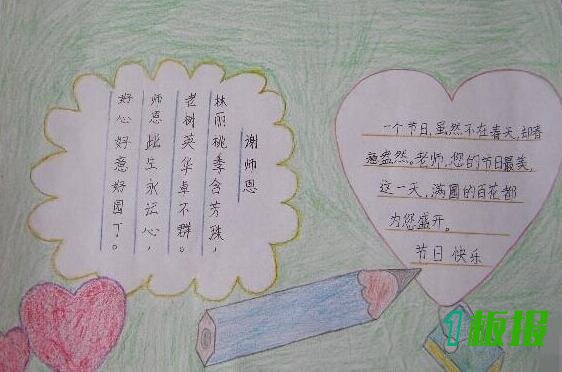 谢师恩
林丽桃季含芳珠，
老树英华卓不群。
师恩生永记心，
好心好意好园丁。
一个节日,虽然不在春天,却春
意盎然。老师,您的节日最美,
这一天,满园的百花都
为您盛开。
节日快乐
1板报